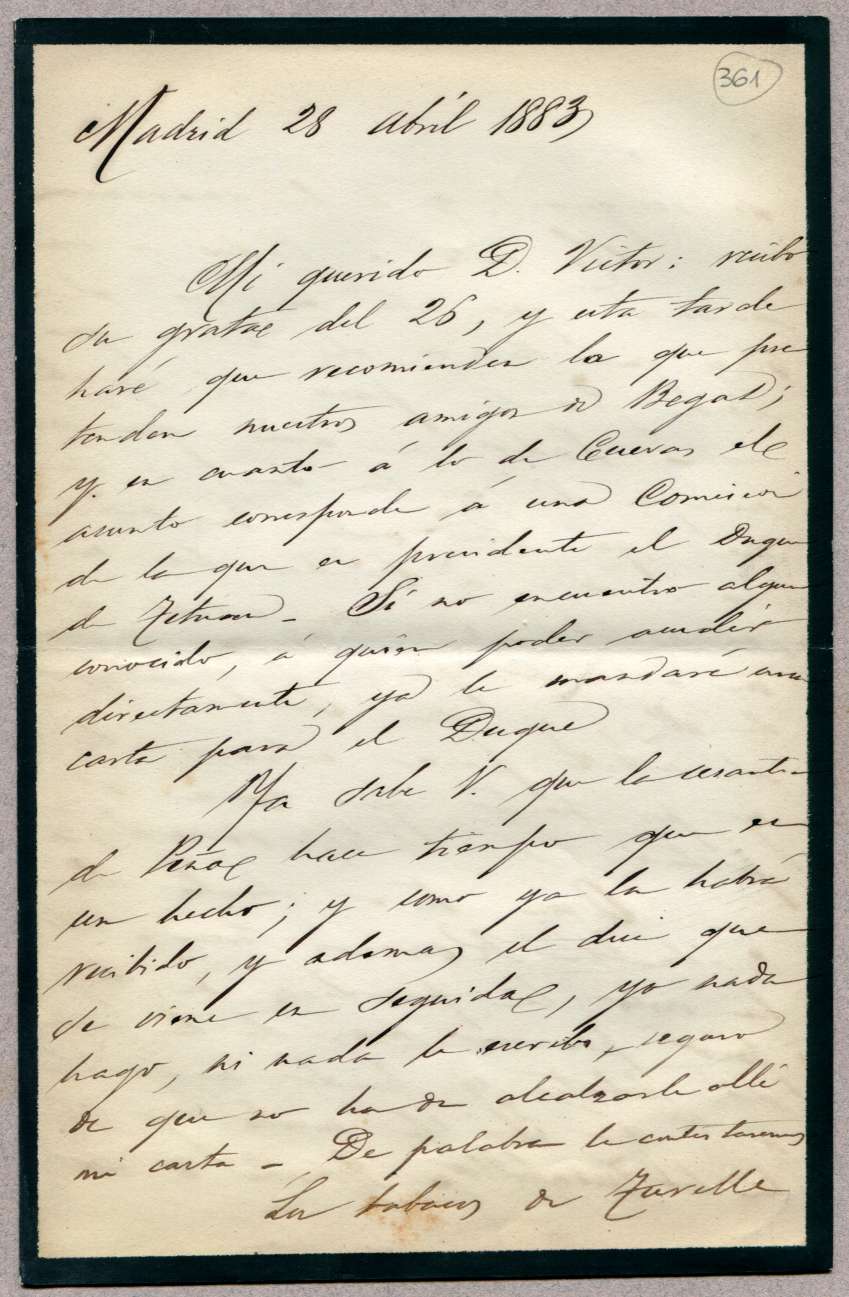 361
Madrid 28 abril 1883
Mi querido D. Victor: recibo
su grata del 26, y esta tarde
haré que recomienden lo que pre
tenden nuestros amigos de Begas;
y en cuanto á lo de Cuevas el
asunto corresponde á una Comision
de la que es presidente el Duque
de Tetuan - Si no encuentro algun
conocido, á quien poder acudir
directamente, ya le mandaré una
carta para el Duque
Ya sabe V. que la cesantia
de Peña hace tiempo que es
un hecho; y como ya la habrá
recibido, y ademas el dice que
se viene en seguida, yo nada
hago, ni nada le escribo, seguro
de que no ha de alcalzarle allí
mi carta - De palabra le contestaremos
Los tabacos de